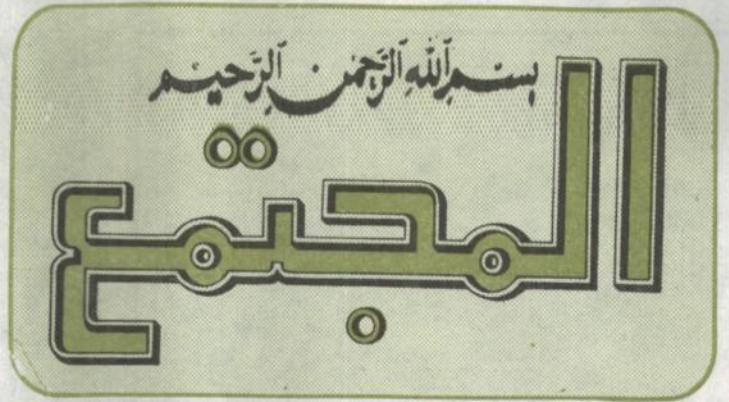 بِسْمِ ٱللَّهِ ٱلرَّحْمَٰنِ ٱلرَّحِيمِ
المجتمع